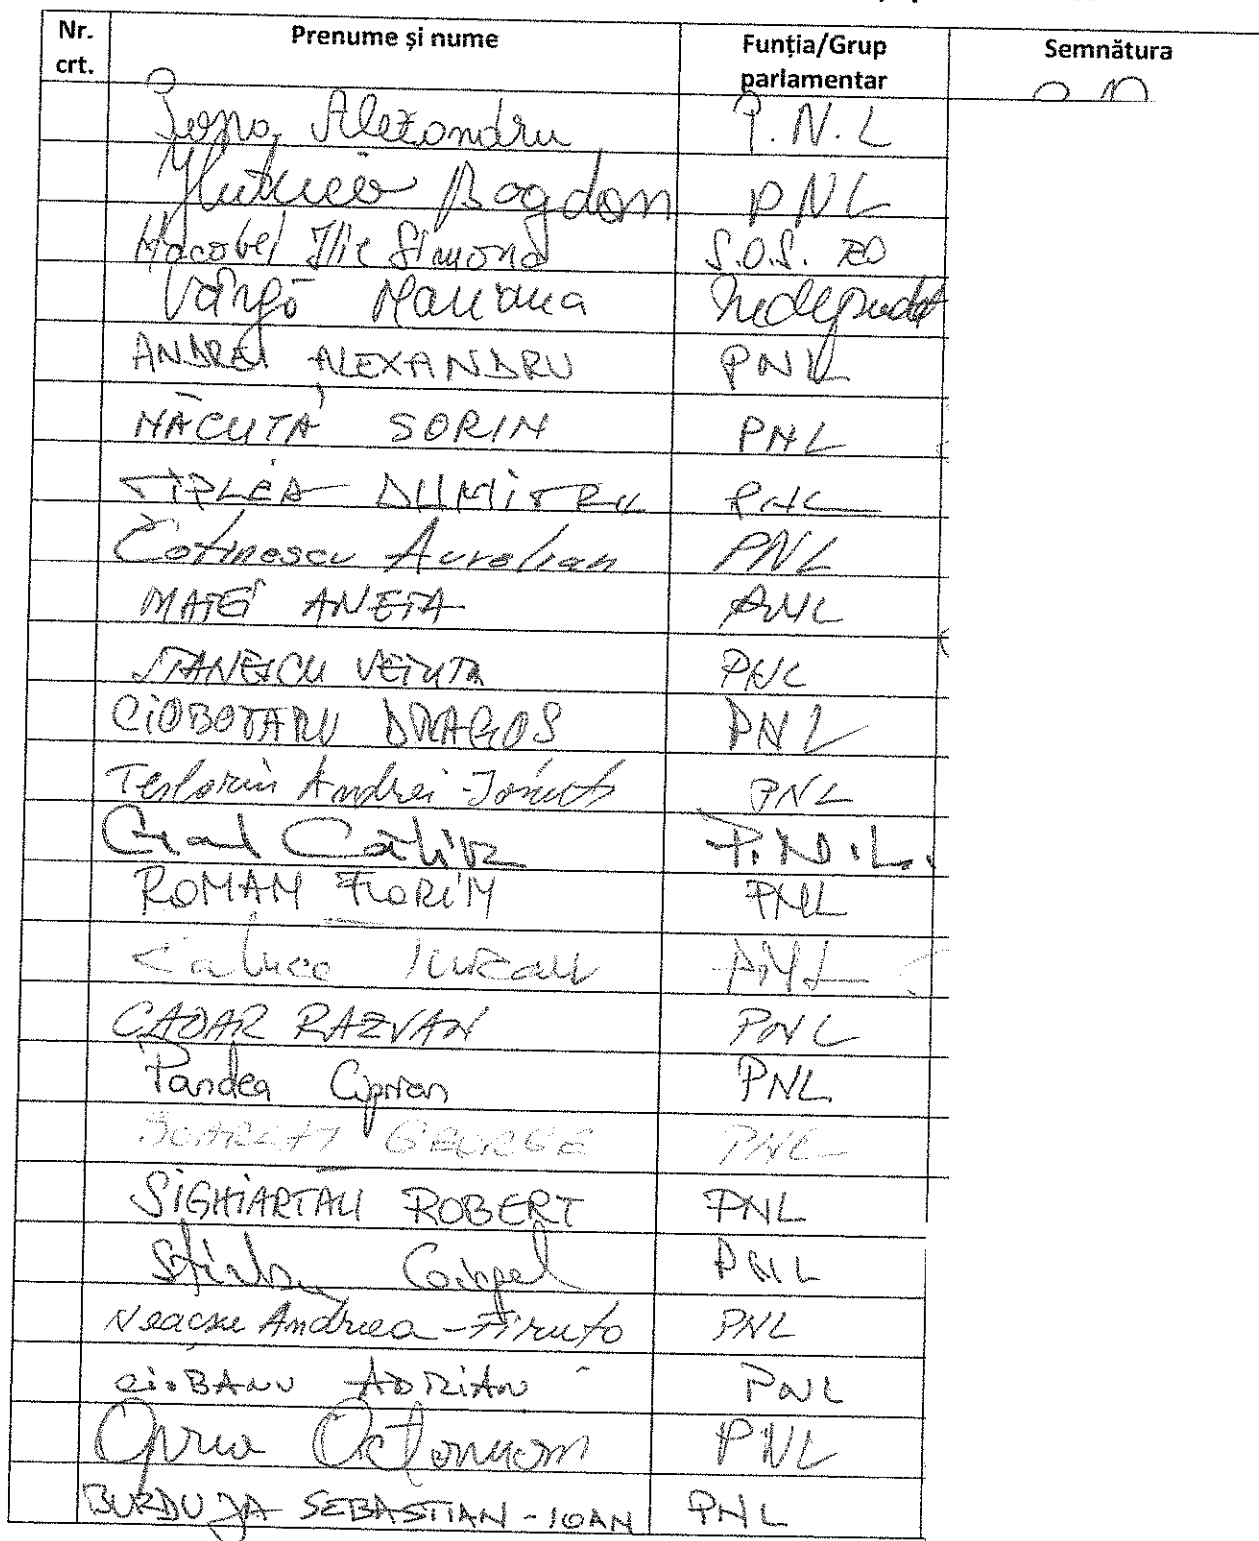 Nr. crt. Prenume și nume Funția/Grup parlamentar Semnătura
Popa Alexandru P.N.L
Huțucă Bogdan PNL
Macovei Ilie Simona S.O.S. RO
Varga Mariana Independent
ANDREI ALEXANDRU PNL
NĂCUȚĂ SORIN PNL
ȚÎPLEA DUMITRU PNL
Cotinescu Aurelian PNL
MATEI ANETA PNL
STANESCU VETUTA PNL
CIOBOTARU DRAGOS PNL
Andrei-Ionuț PNL
Călin P.N.L.
ROMAN FLORIN PNL
PNL
CADAR RAZVAN PNL
Pandea Ciprian PNL
SCARLAT GEORGE PNL
SIGHIARTĂU ROBERT PNL
PNL
Neacșu Andreea-Firuța PNL
CIOBANU ADRIAN PNL
Oprea Octavian PNL
BURDUJA SEBASTIAN-IOAN PNL